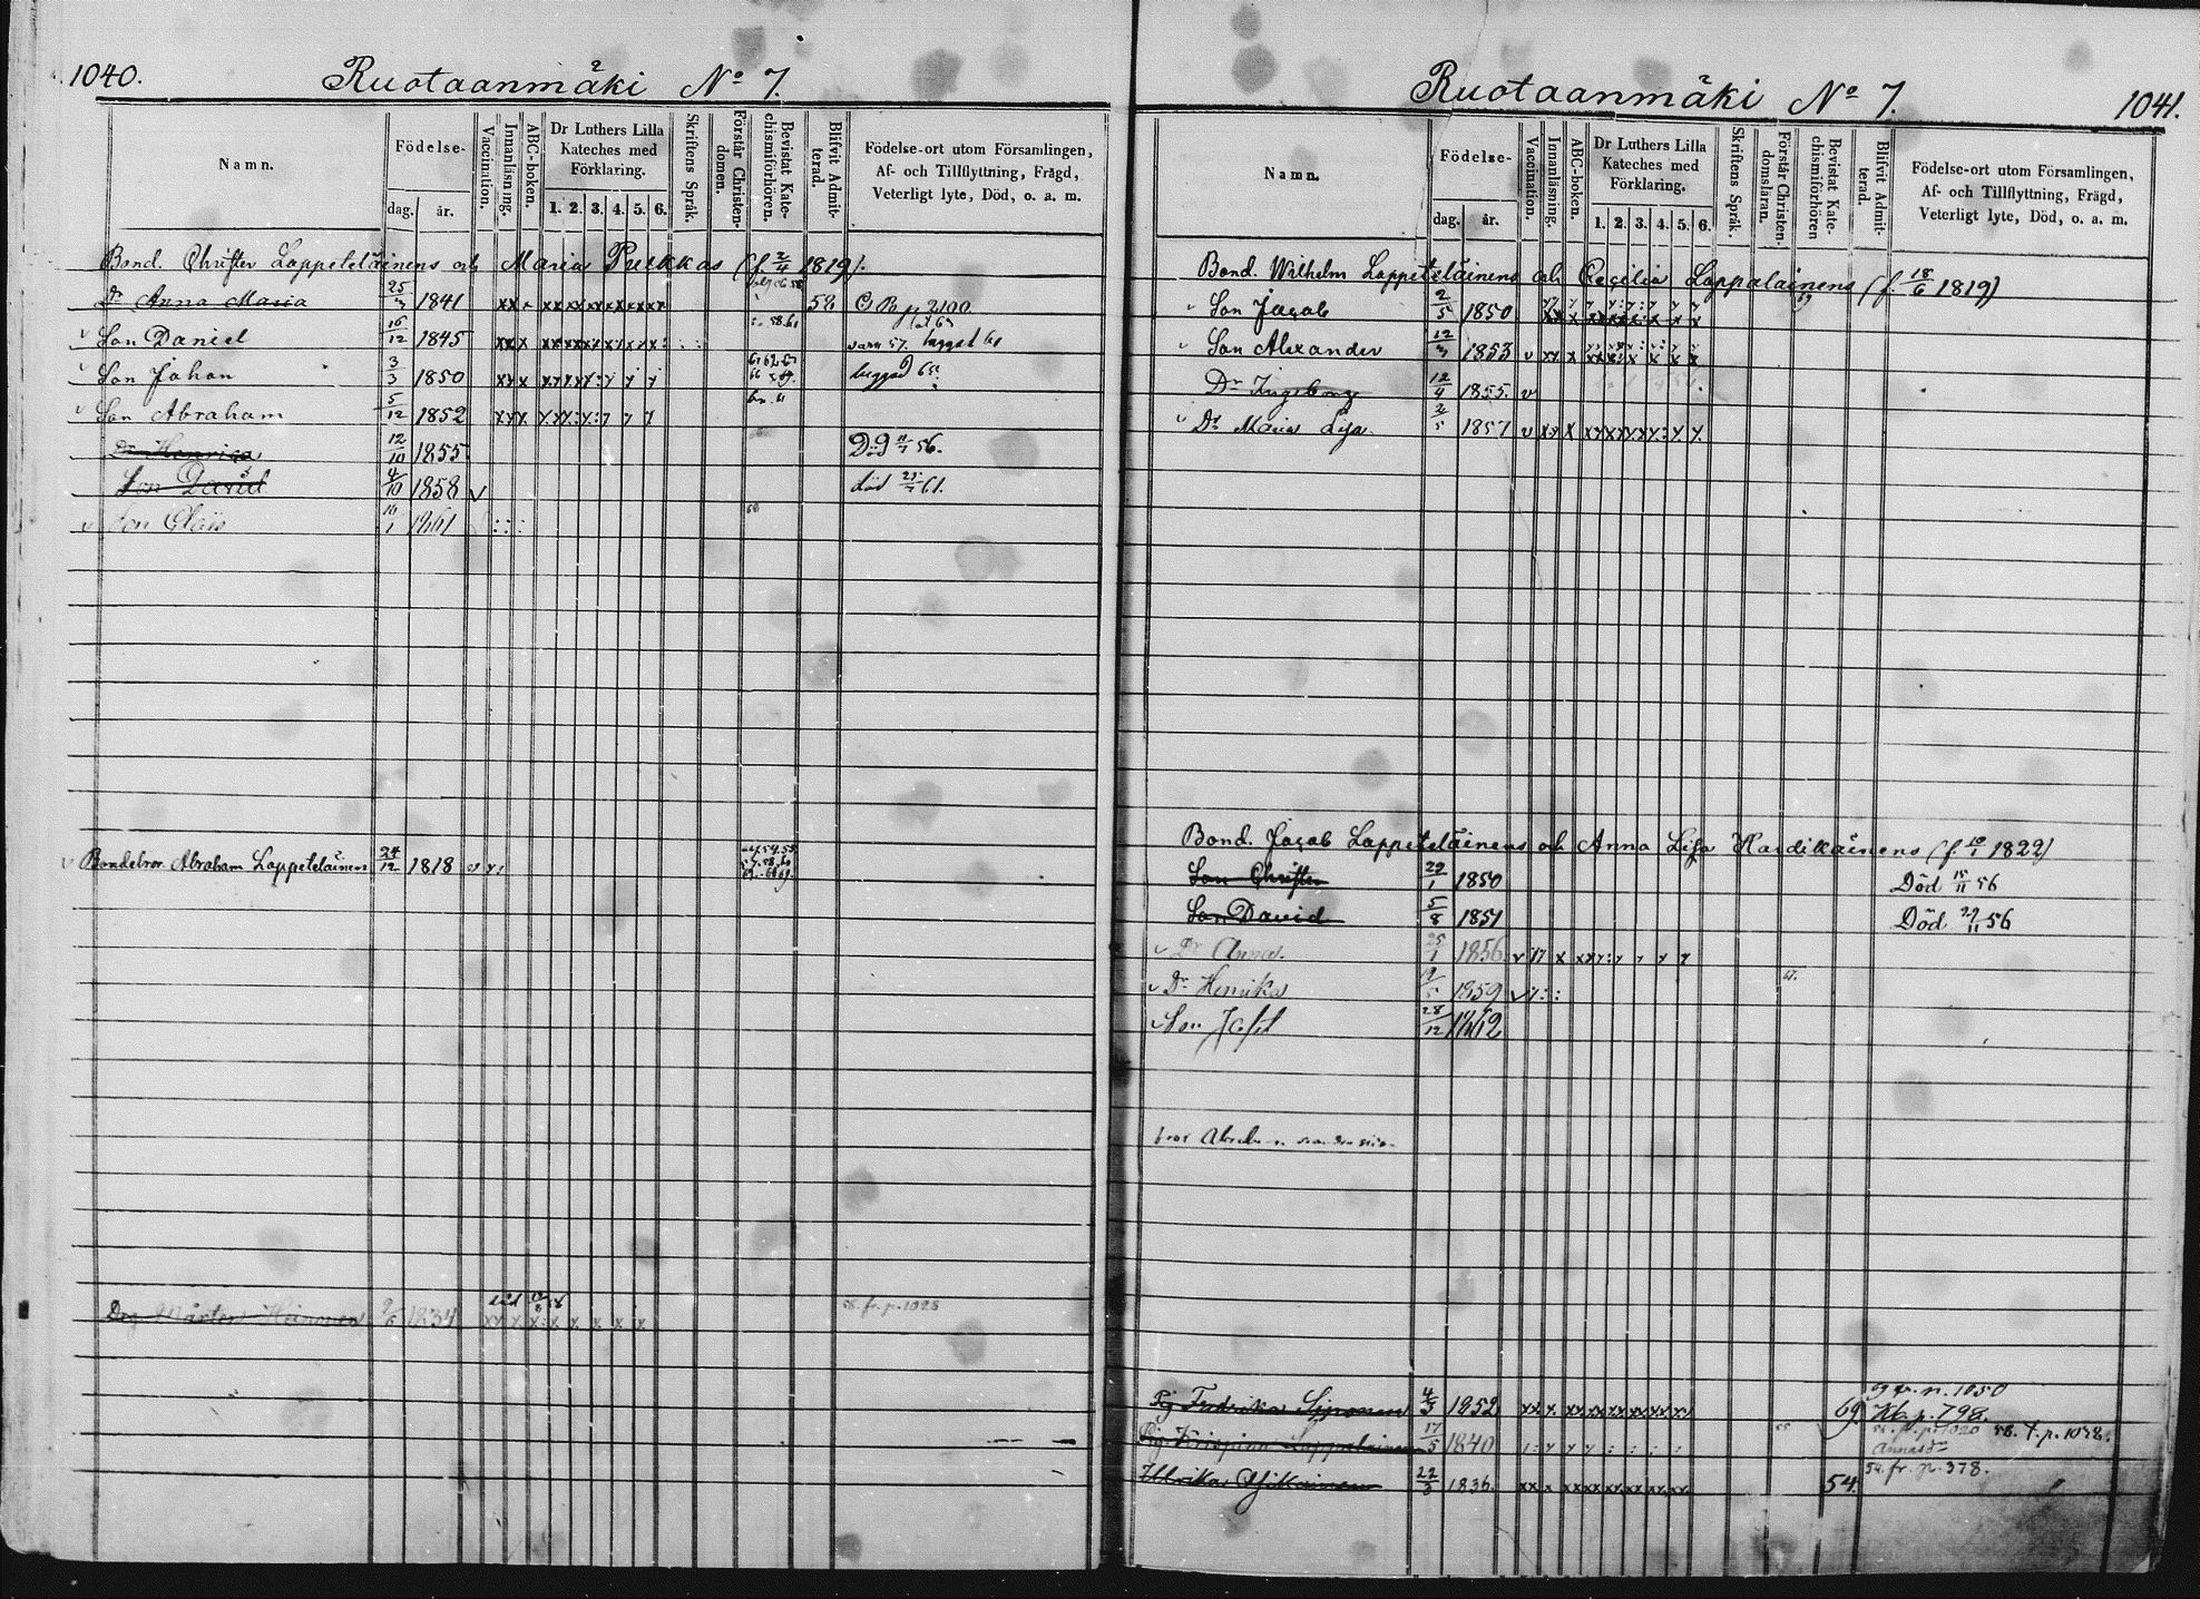 1040.
Ruotaanmäki No 7.
Namn.
Födelse-
dag. år.
Vaccination.
Innanläsning.
ABC-boken.
Dr Luthers Lilla Kateches med Förklaring.
1. 2. 3. 4. 5. 6.
Skriftens Språk.
Förstår Christen-domen.
Bevistat Kate-chismiförhören.
Blifvit Admit-terad.
Födelse-ort utom Församlingen, Af- och Tillflyttning, Frägd, Veterligt lyte, Död, o. a. m.
Bond. Christer Lappeteläinens och Maria Pulkkas (f. 2/4 1819).
Dr Anna Maria 25/3 1841 58
Son Daniel 16/12 1845
Son Johan 3/3 1850
Son Abraham 5/12 1852
Dr Henrica 12/10 1855 56.
Son David 4/10 1858 död 61.
Son Claës 16/1 1861
Bondebror Abraham Lappeteläinens 24/12 1818
Drg Mårten Heinonen 1834 58. fr. p. 1028
Ruotaanmäki No 7.
1041.
Namn.
Födelse-
dag. år.
Vaccination.
Innanläsning.
ABC-boken.
Dr Luthers Lilla Kateches med Förklaring.
1. 2. 3. 4. 5. 6.
Skriftens Språk.
Förstår Christen-domsläran.
Bevistat Kate-chismiförhören
Blifvit Admit-terad.
Födelse-ort utom Församlingen, Af- och Tillflyttning, Frägd, Veterligt lyte, Död, o. a. m.
Bond. Wilhelm Lappeteläinens och Cecilia Lappalainens (f. 18/6 1819)
Son Jacob 2/5 1850
Son Alexander 12/3 1853
Dr Ingeborg 12/4 1855.
Dr Maria Lisa 2/5 1857
Bond. Jacob Lappeteläinens och Anna Lisa Hardikainens (f. 10/1 1822)
Son Christer 22/1 1850 Död 15/11 56
Son David 5/8 1851 Död 29/11 56
Dr Anna. 25/1 1856
Dr Henrika 1859
Son Josef 28/12 1862
bror Abraham
Pig Fredrika Sipponen 4/3 1852 69 p. 798.
Pig Krispina Lappalainen 17/5 1840 58. t. p. 1048.
Ulrika 22/3 1836. 54. 54. fr. p. 378.